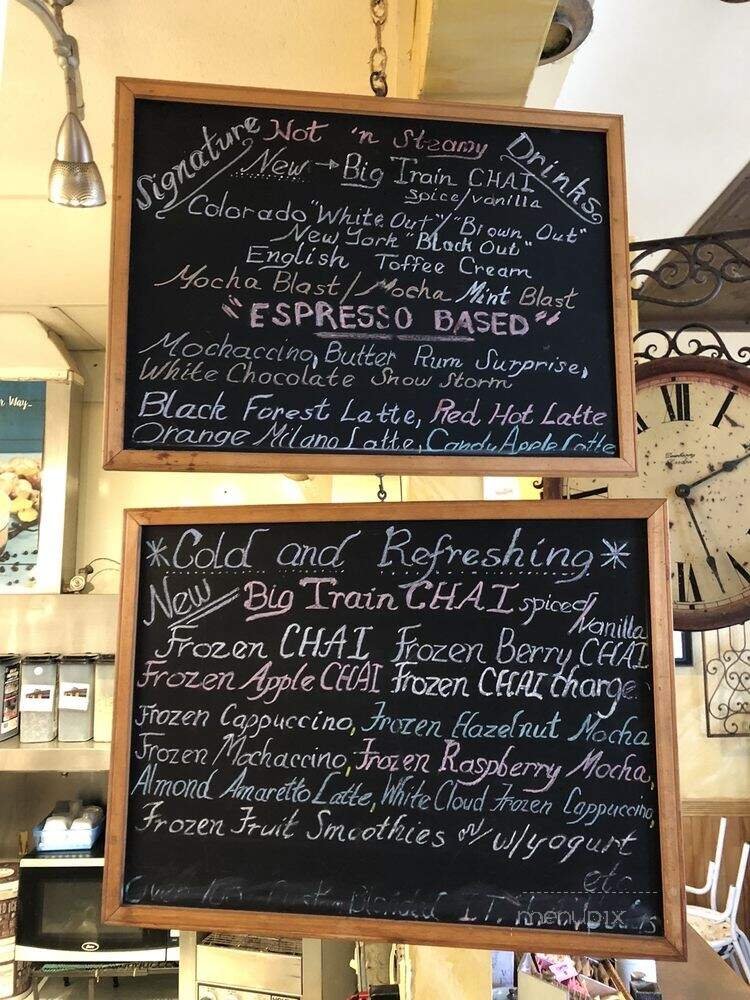 Signature Hot 'n Steamy Drinks
New → Big Train CHAI
spice/vanilla
Colorado "White Out"/"Brown Out"
New York "Black Out"
English Toffee Cream
Mocha Blast/Mocha Mint Blast
"ESPRESSO BASED"
Mochaccino, Butter Rum Surprise,
White Chocolate Snow Storm
Black Forest Latte, Red Hot Latte
Orange Milano Latte, Candy Apple Latte
*Cold and Refreshing*
New Big Train CHAI spiced/vanilla
Frozen CHAI Frozen Berry CHAI
Frozen Apple CHAI Frozen CHAI charge
Frozen Cappuccino, Frozen Hazelnut Mocha
Frozen Mochaccino, Frozen Raspberry Mocha,
Almond Amaretto Latte, White Cloud Frozen Cappuccino,
Frozen Fruit Smoothies or w/yogurt
etc
menupix
Way..